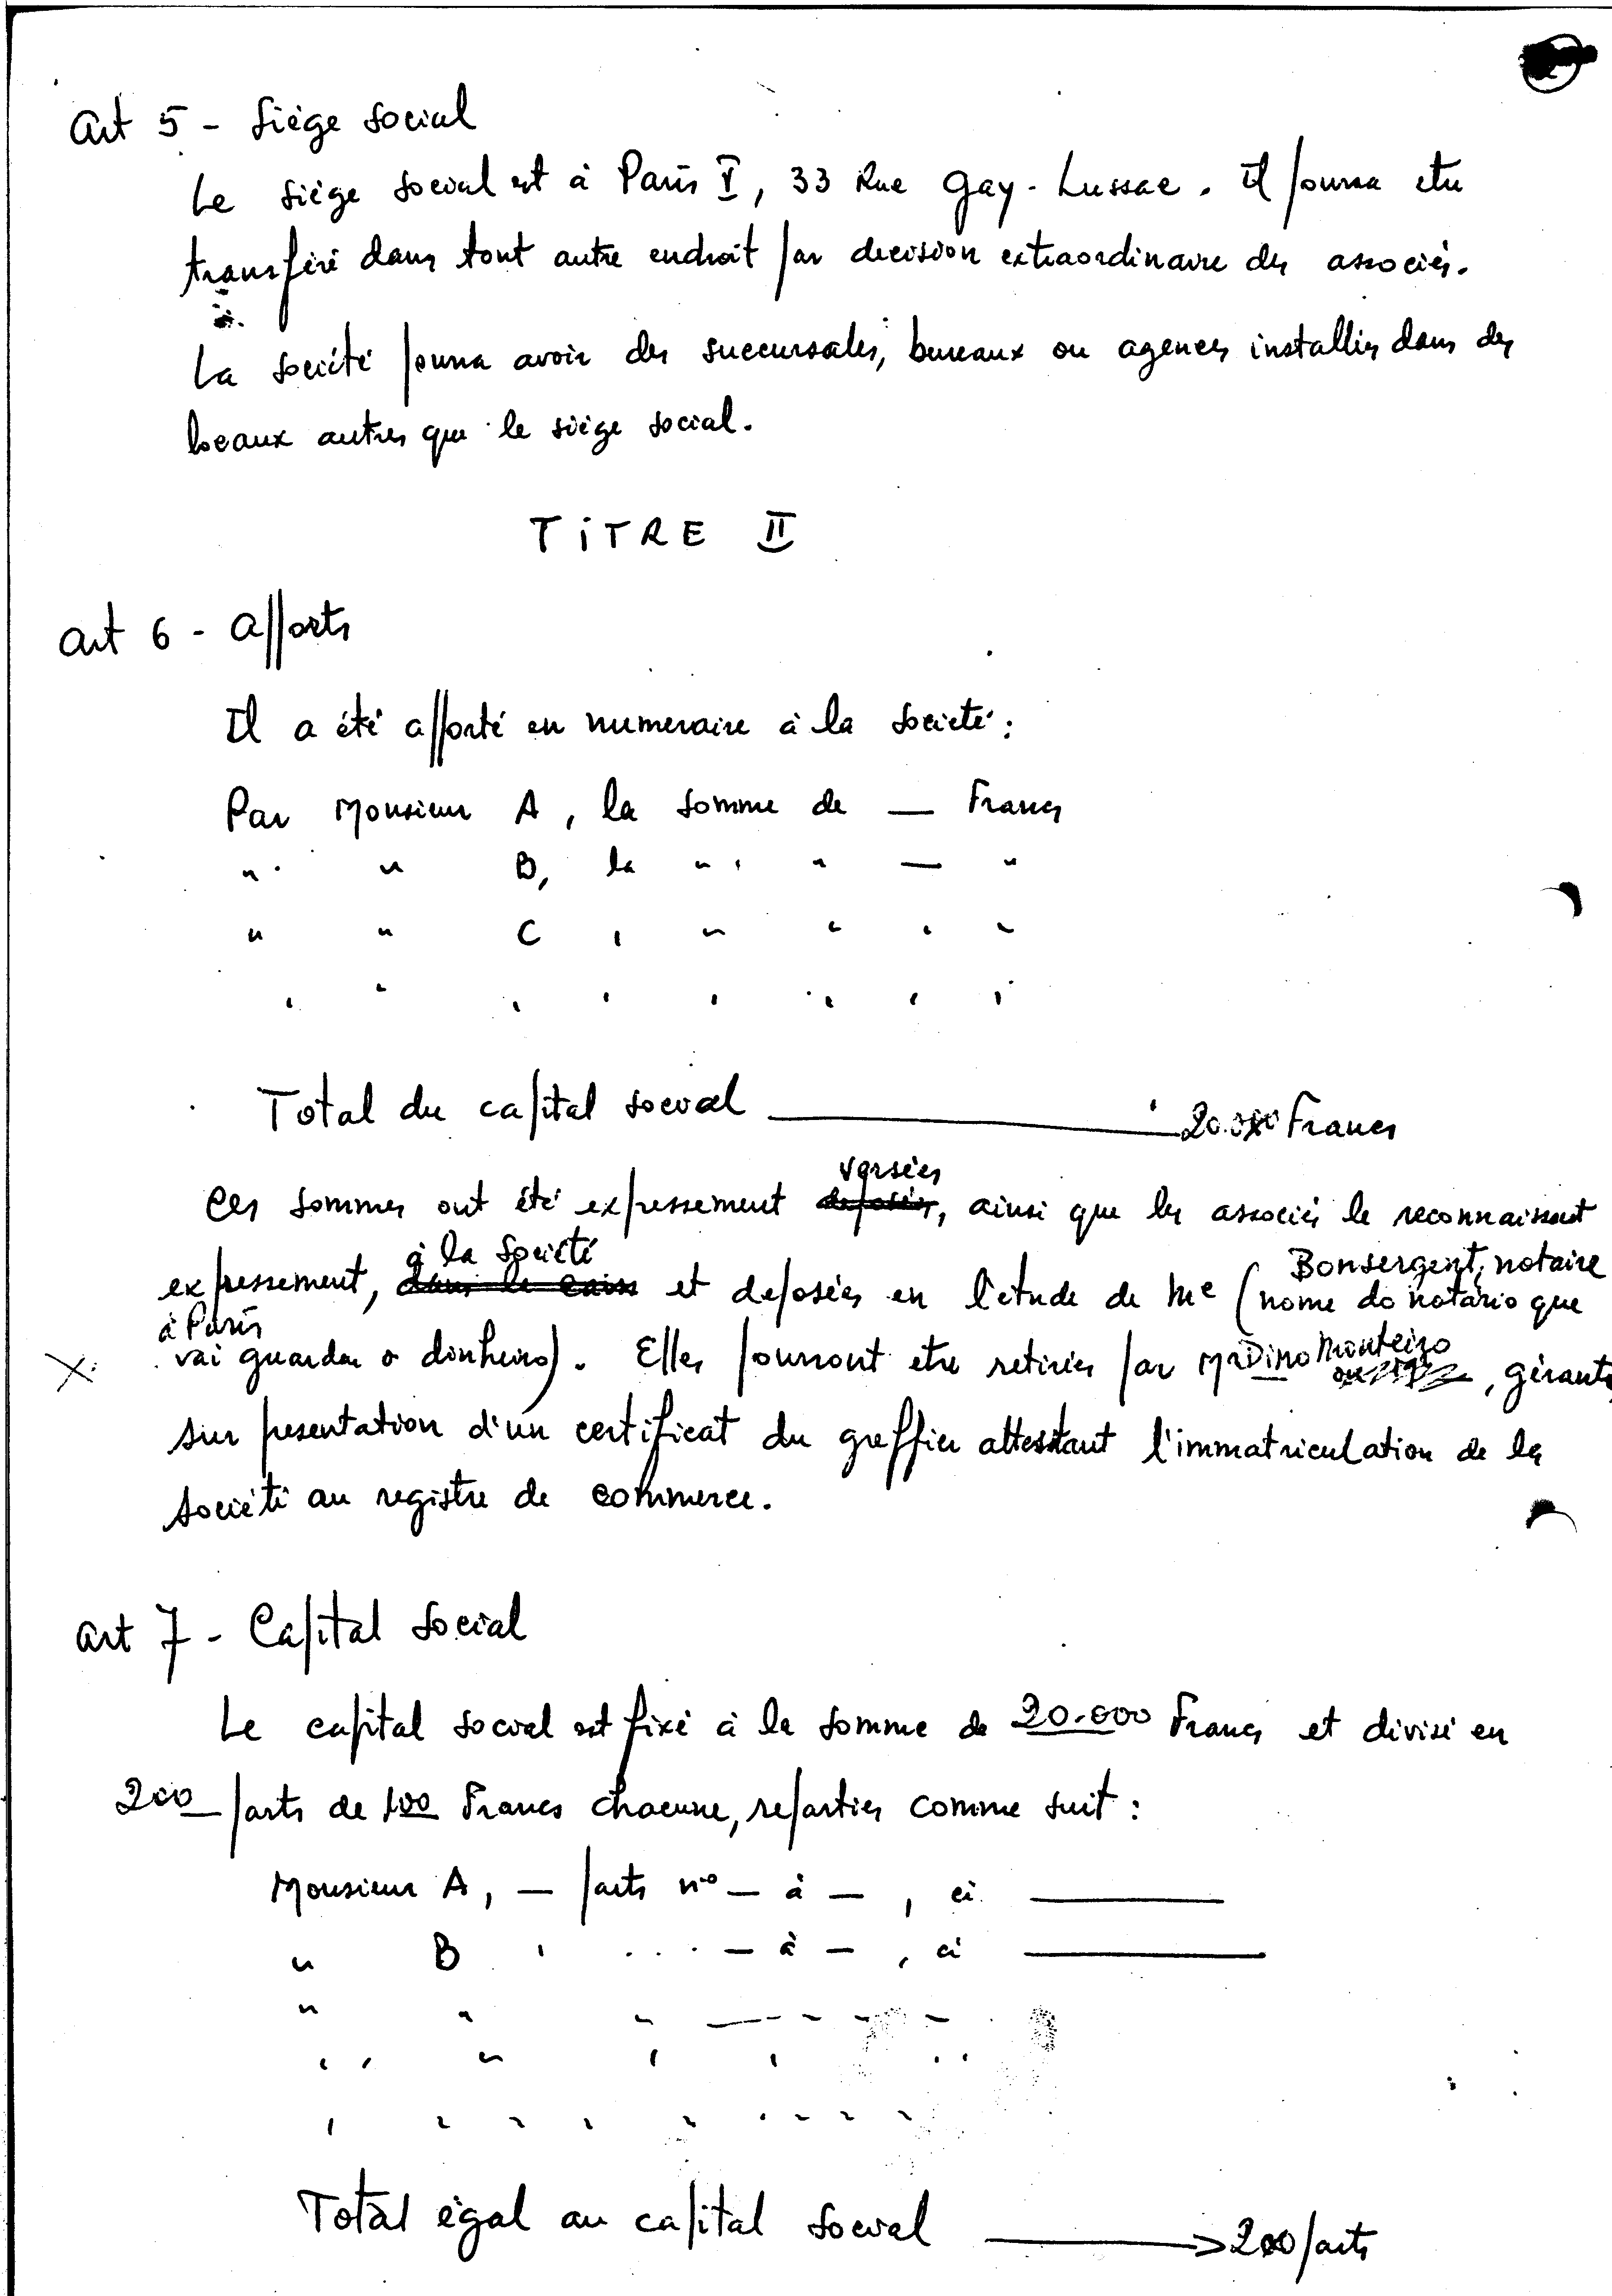 Art 5 - Siège social
Le siège social est à Paris V, 33 Rue Gay-Lussac. Il pourra etre
transféré dans tout autre endroit par decision extraordinaire des associés.
La société pourra avoir des succursales, bureaux ou agences installés dans des
locaux autres que le siège social.
TITRE II
Art 6 - Apports
Il a été apporté en numeraire à la société :
Par Monsieur A, la somme de — Francs
" " B, la " " — "
" " C , " " " "
Total du capital social ——— 20.000 Francs
versées
Ces sommes ont été expressement deposées, ainsi que les associés le reconnaissent
à la société
Bonsergent, notaire
expressement, dans la caisse et deposées en l'etude de Me (nome do notário que
à Paris
vai guardar o dinheiro). Elles pourront etre retirées par Mr Dino Monteiro , gérants
sur presentation d'un certificat du greffier attestant l'immatriculation de la
société au registre de commerce.
Art 7 - Capital social
Le capital social est fixé à la somme de 20.000 Francs et divisé en
200 parts de 100 Francs chacune, reparties comme suit :
Monsieur A, — parts nº — à — , ci ———
" B ' . . . — à — , ci ———
Total égal au capital social ———> 200 parts